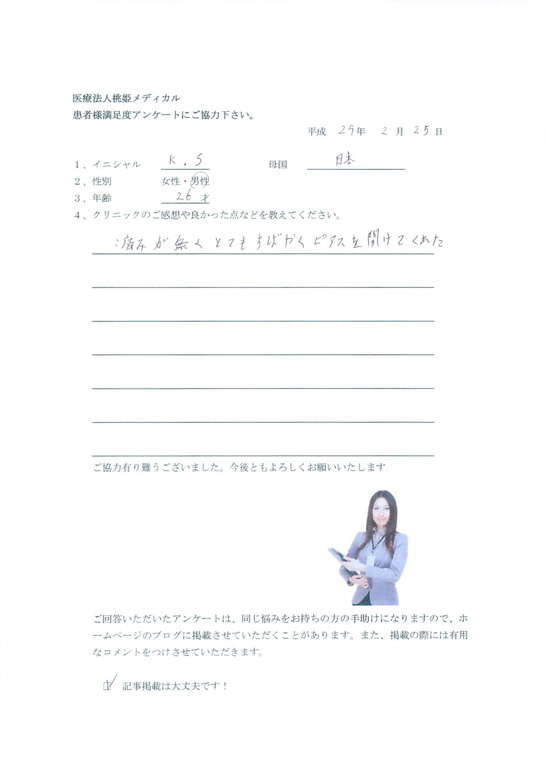 医療法人桃姫メディカル
患者様満足度アンケートにご協力下さい。
平成 29年 2月 25日
1、イニシャル K.S 母国 日本
2、性別 女性・男性
3、年齢 26才
4、クリニックのご感想や良かった点などを教えてください。
痛みが無くとてもすばやくピアスを開けてくれた
ご協力有り難うございました。今後ともよろしくお願いいたします
ご回答いただいたアンケートは、同じ悩みをお持ちの方の手助けになりますので、ホ
ームページのブログに掲載させていただくことがあります。また、掲載の際には有用
なコメントをつけさせていただきます。
☑ 記事掲載は大丈夫です！